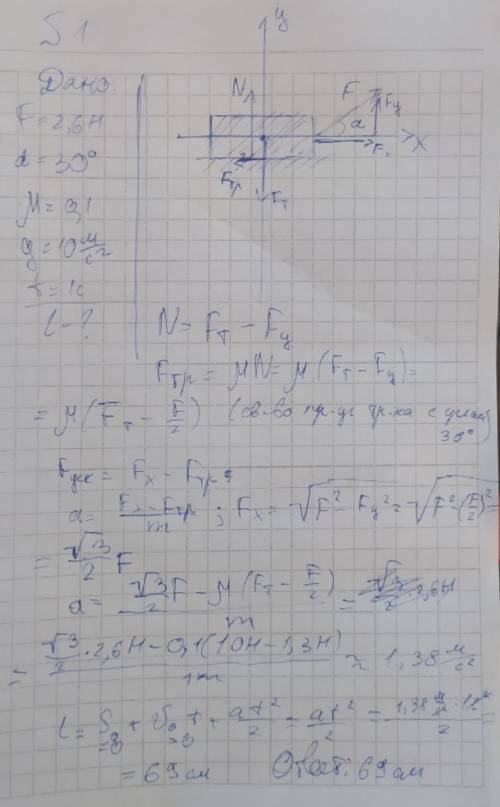 S1
Дано
F = 2,6 Н
α = 30°
μ = 0,1
g = 10 м/с²
t = 1с
l - ?
y
N
F
Fy
α
Fx
X
Fтр
Fт
N = Fт - Fy
Fтр = μN = μ(Fт - Fy) =
= μ(Fт - F/2) (св-во пр-уг тр-ка с углом 30°)
Fуск = Fx - Fтр
a = (Fx - Fтр)/m ; Fx = √(F² - Fy²) = √(F² - (F/2)²) =
= √3/2 F
a = (√3/2 F - μ(Fт - F/2))/m =
= (√3/2 · 2,6Н - 0,1(10Н - 1,3Н))/1m ≈ 1,38 м/с²
l = S₀ + V₀t + at²/2 = at²/2 = =0 =0
= 69 см Ответ: 69 см